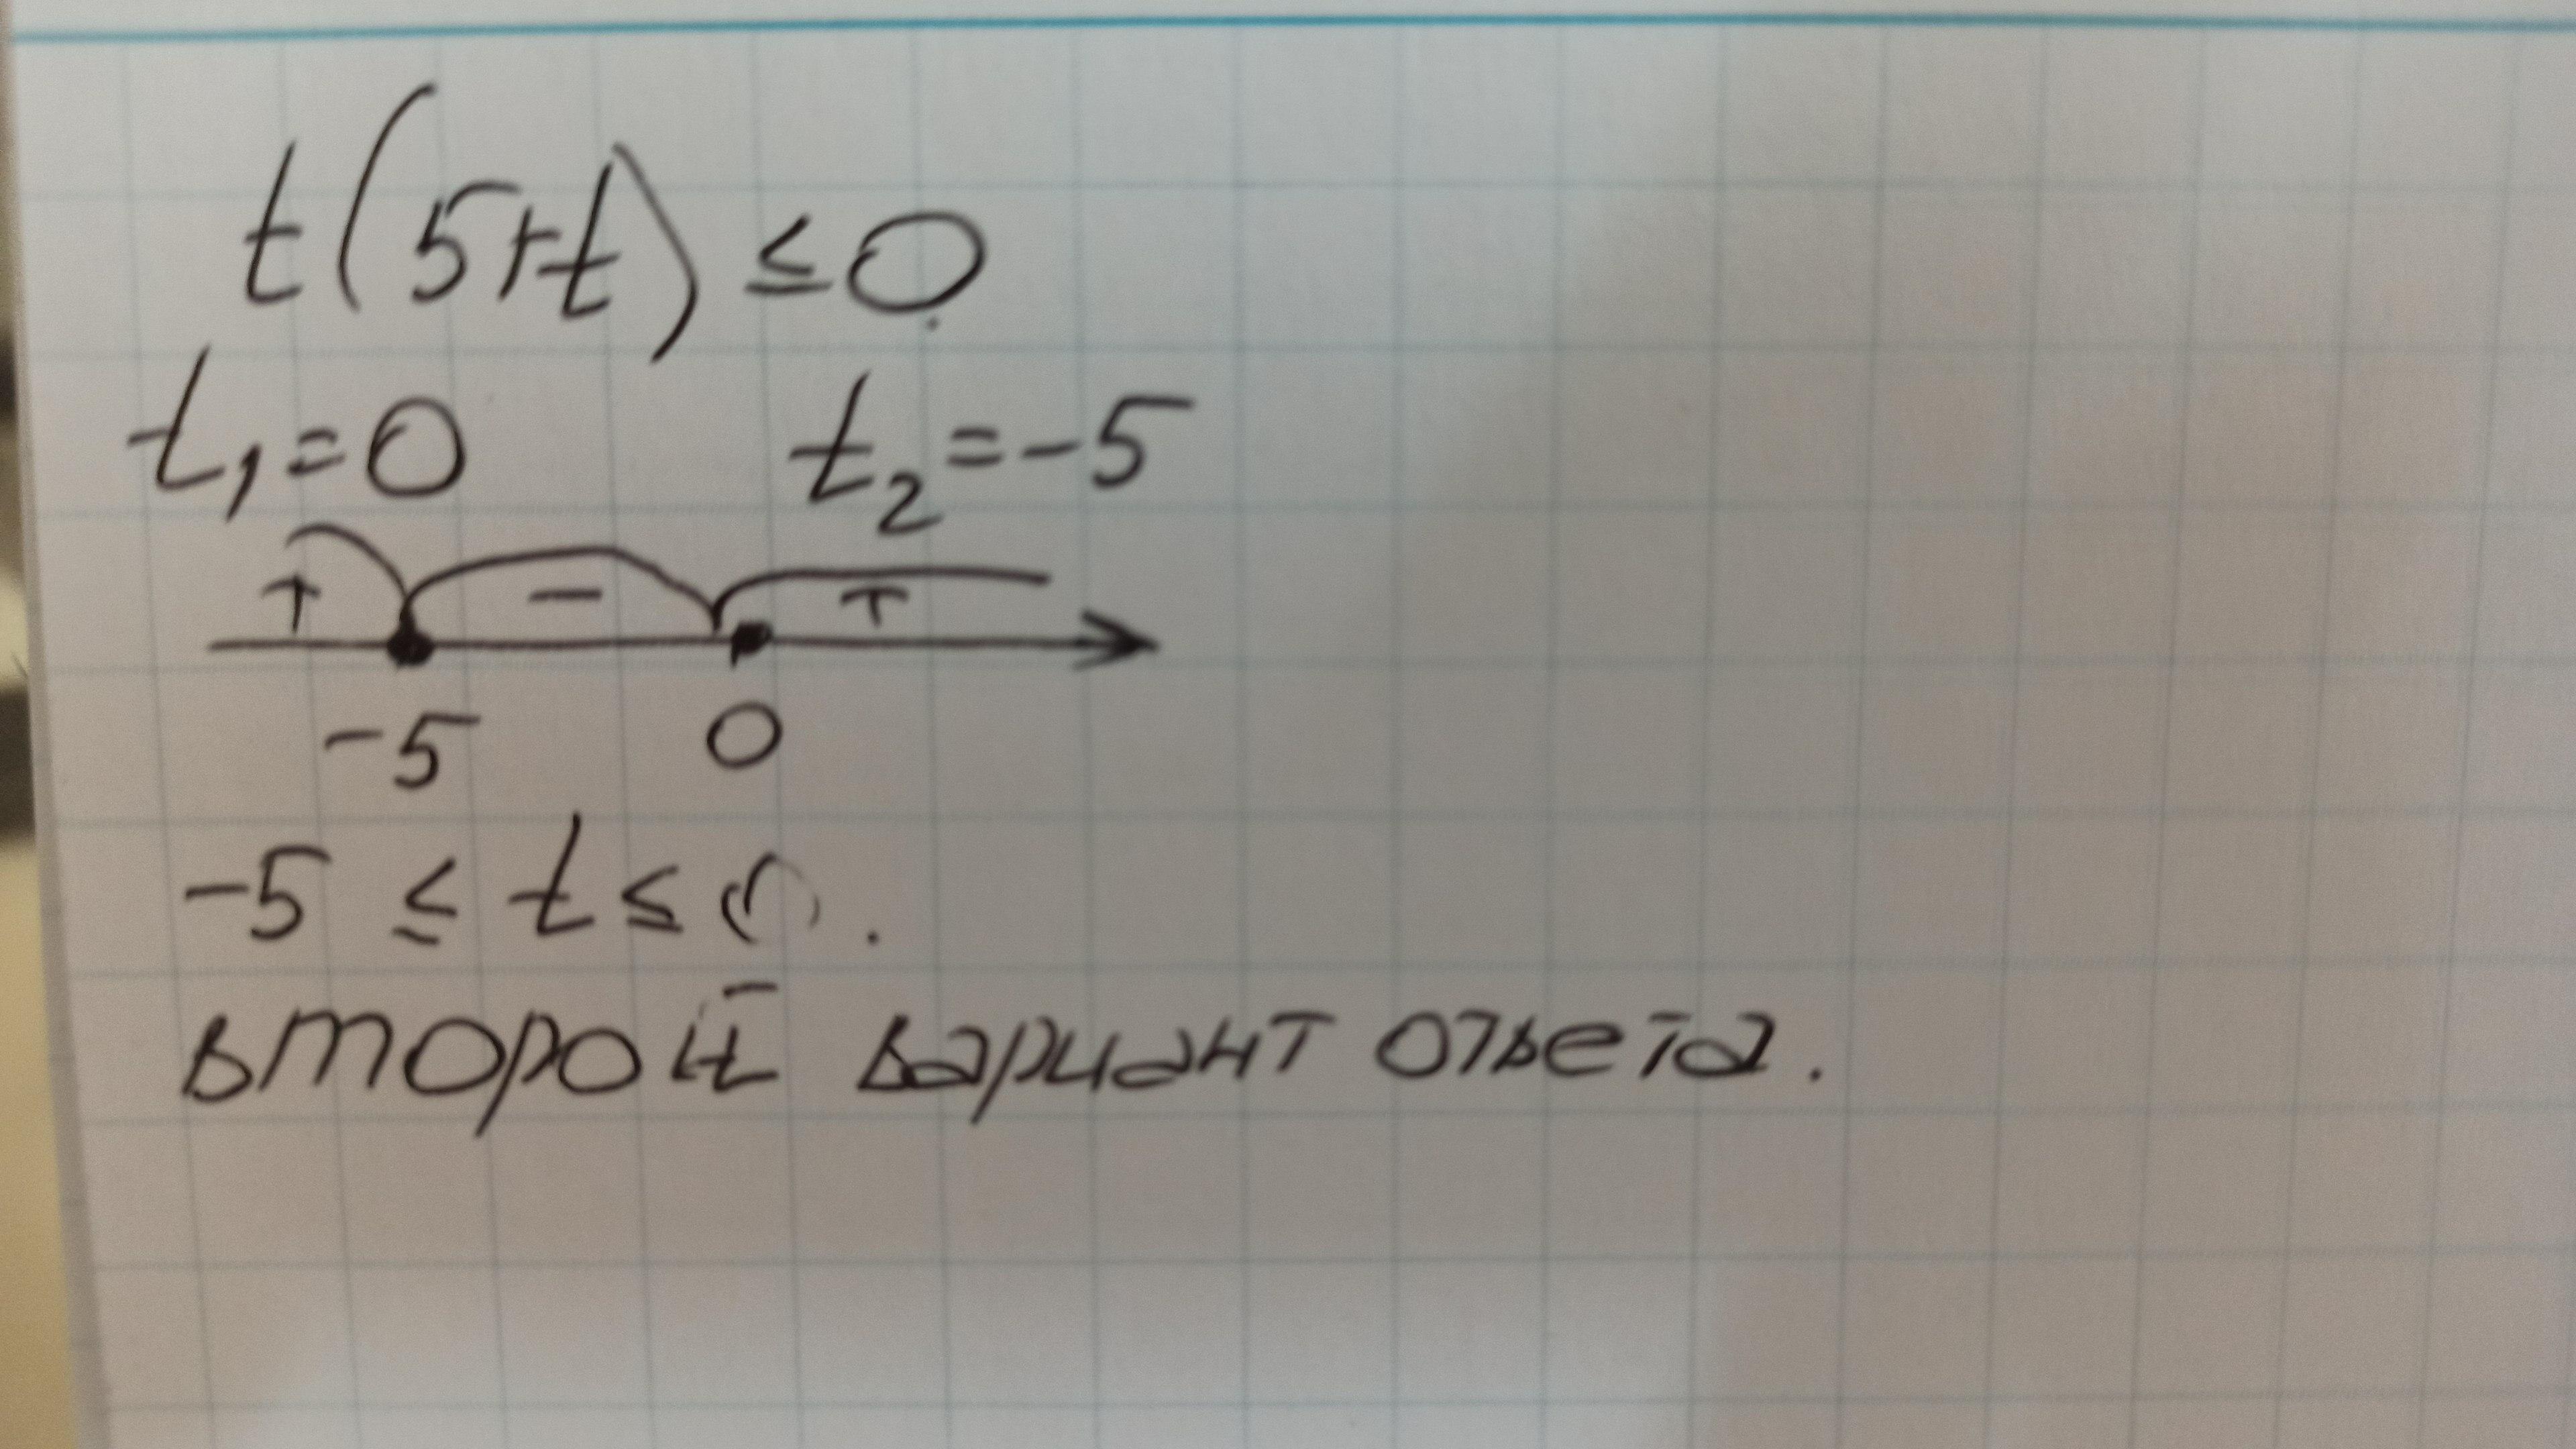 t(5+t) ≤ 0
t₁=0 t₂=-5
+ - +
-5 0
-5 ≤ t ≤ 0.
второй вариант ответа.